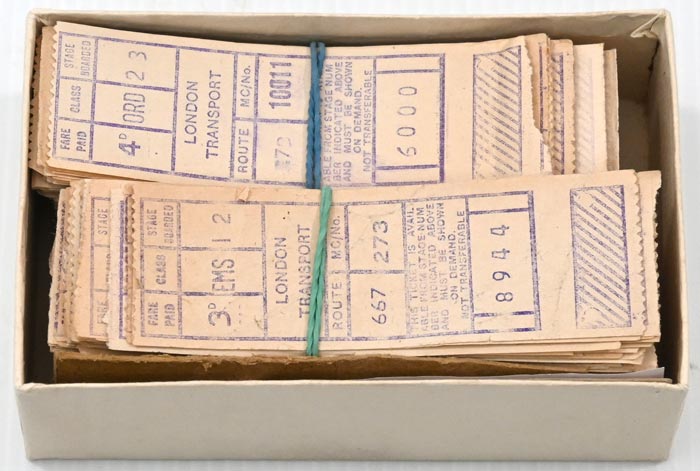 STAGE BOARDED 23
CLASS ORD
FARE PAID 4D
LONDON TRANSPORT
MC/No. 10011
ROUTE
ABLE FROM STAGE NUM
BER INDICATED ABOVE
AND MUST BE SHOWN
ON DEMAND.
NOT TRANSFERABLE
6000
STAGE
CLASS
FARE
STAGE BOARDED 12
CLASS EMS
FARE PAID 3D
LONDON TRANSPORT
MC/No. 273
ROUTE 667
THIS TICKET IS AVAIL
ABLE FROM STAGE NUM
BER INDICATED ABOVE
AND MUST BE SHOWN
ON DEMAND.
NOT TRANSFERABLE
8944